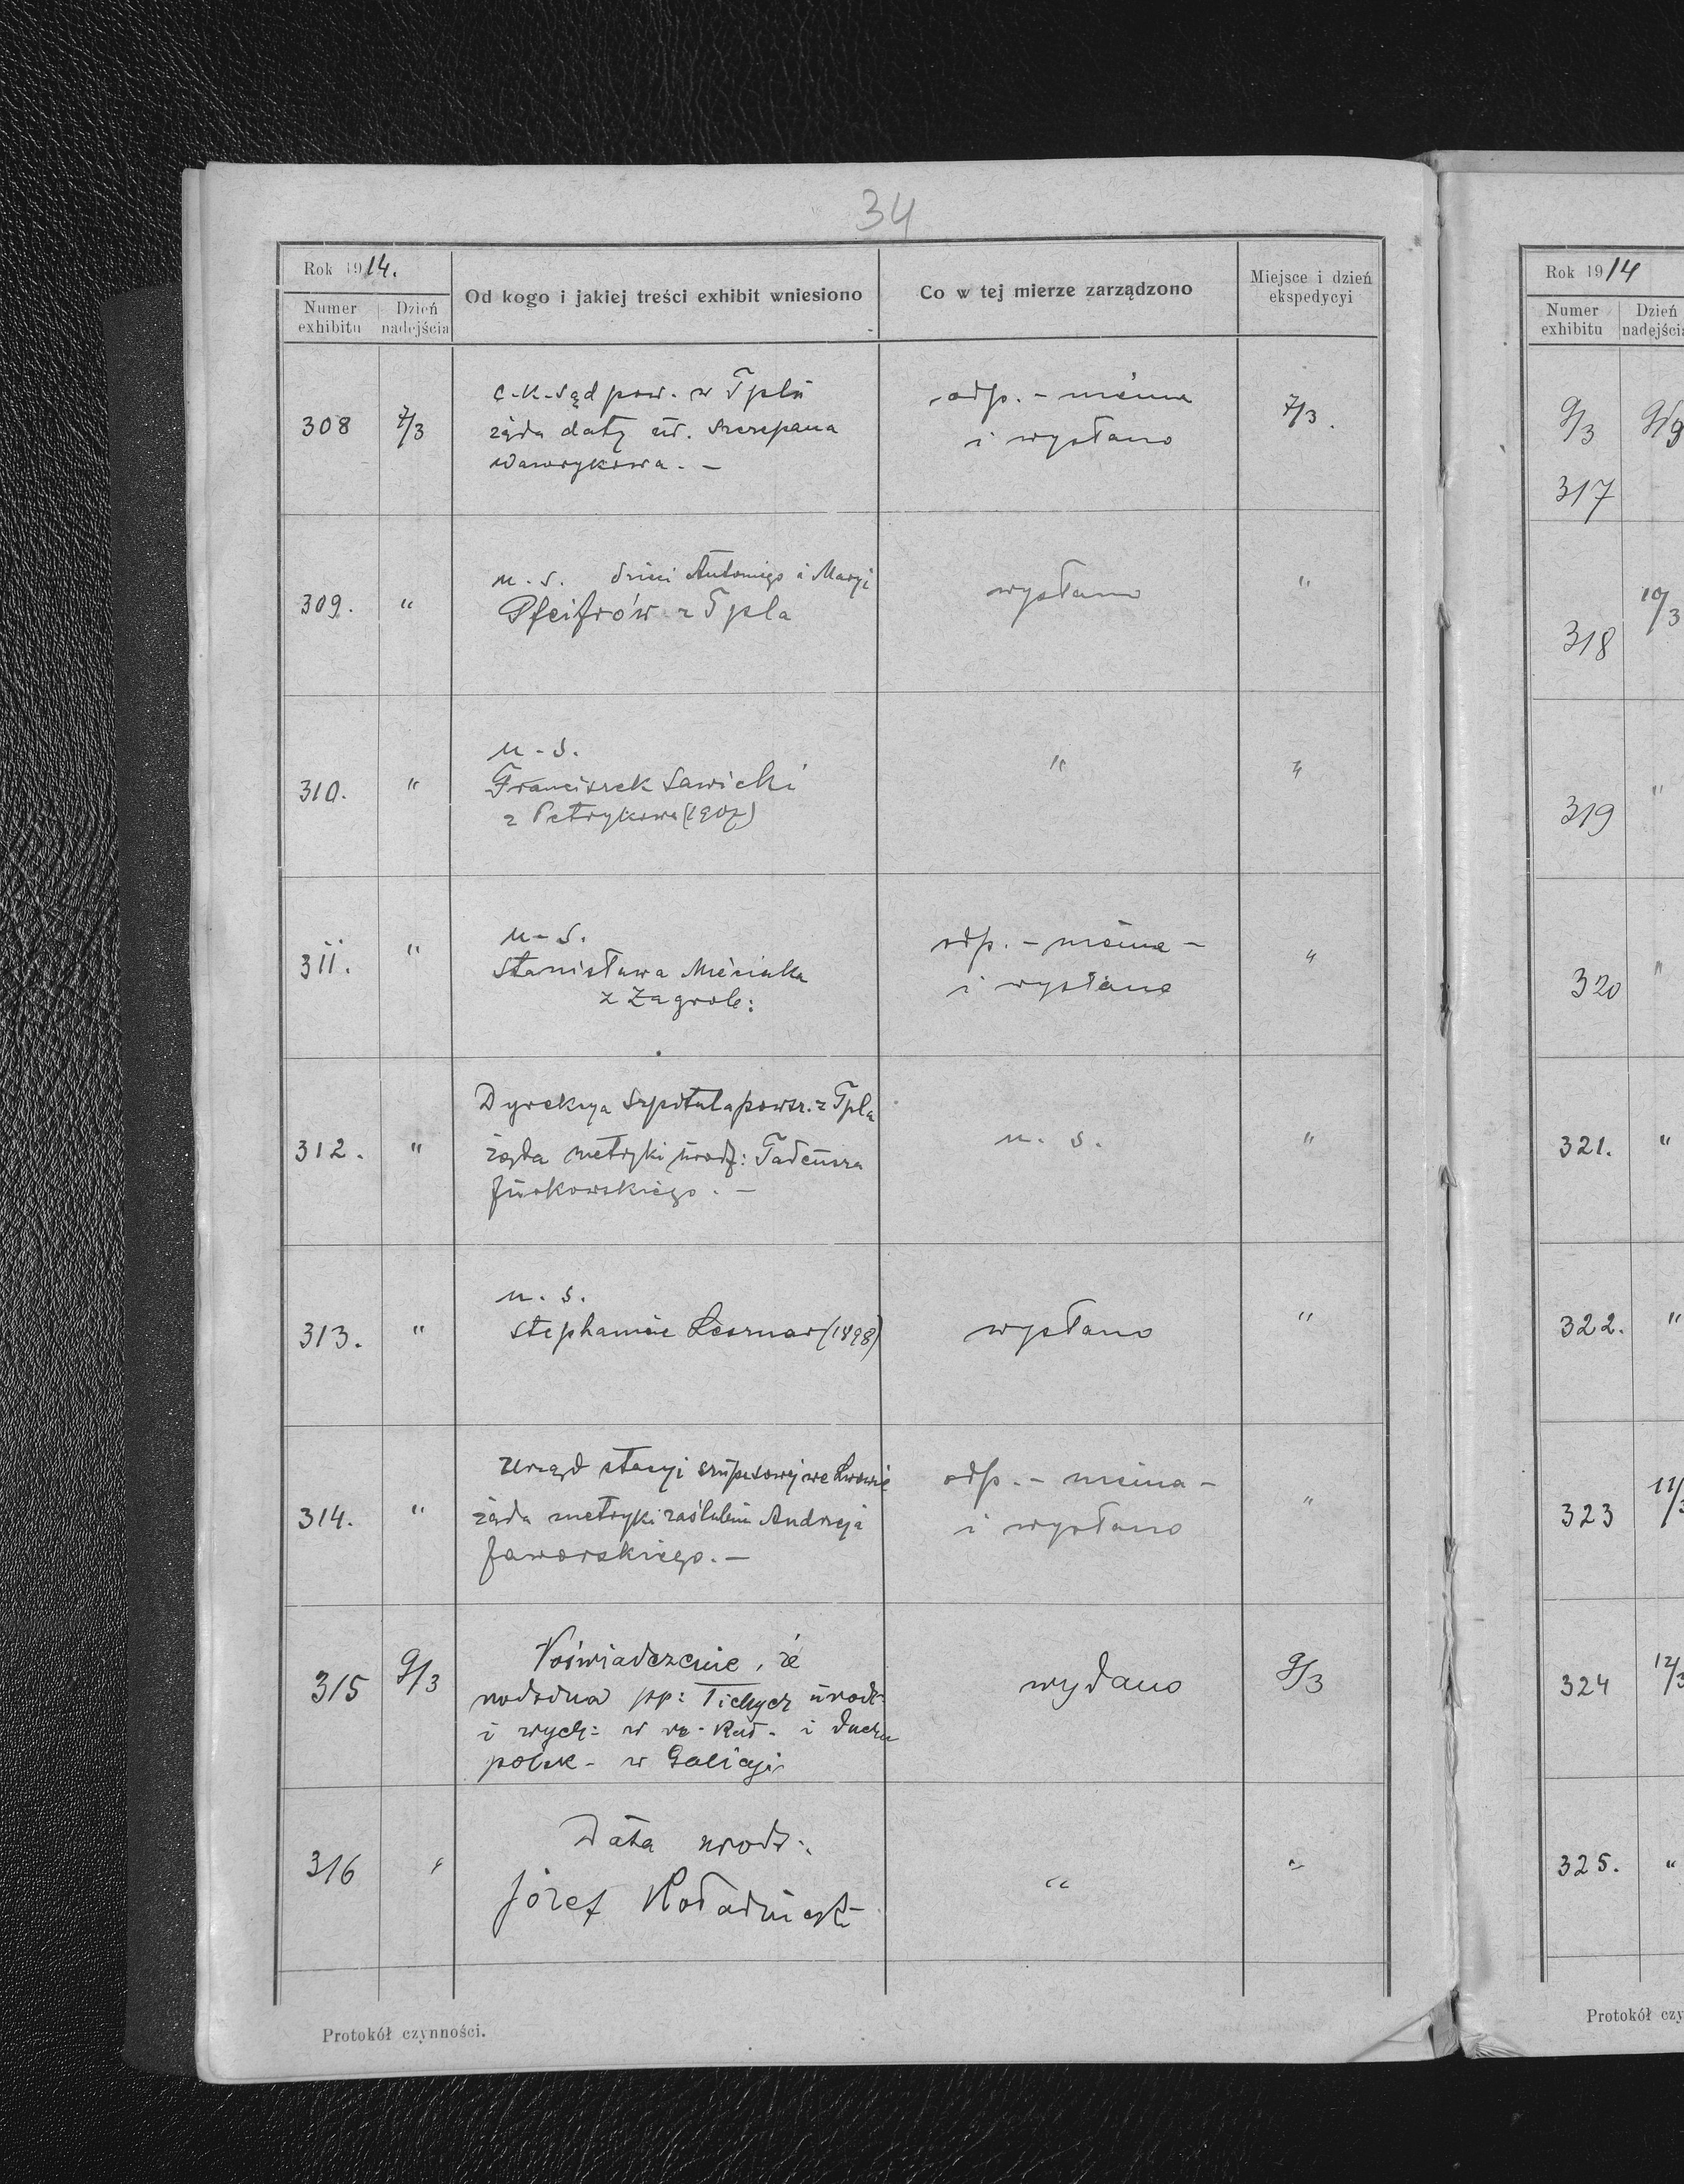 34
Rok 1914.
Numer exhibitu
Dzień nadejścia
Od kogo i jakiej treści exhibit wniesiono
Co w tej mierze zarządzono
Miejsce i dzień ekspedycyi
308
7/3
c. k. Sąd pow. w Tplu
żąda datę ur. Szczepana
Wawrykowa. –
odp. – niema
i wysłano
7/3.
309.
"
u. s. dzieci Antoniego i Maryi
Pfeifrów z Tpla
wysłano
"
310.
"
u. s.
Franciszek Sawicki
z Petrykowa (1907)
"
"
311.
"
u. s.
Stanisława
z Zagrob:
odp. – niema –
i wysłano
"
312.
"
Dyrekcya Szpitala powsz. z Tpla
żąda metryki urodz: Tadeusza
Jurkowskiego. –
u. s.
"
313.
"
u. s.
Stephanie (1898)
wysłano
"
314.
"
Urząd stacyi we Lwowie
żąda metryki zaślubin Andrzeja
Jaworskiego. –
odp. – niema –
i wysłano
"
315
9/3
Poświadczenie, że
rodzina pp: Tichych urodz-
i wych: w rz. kat. i duchu
polsk. w Galicyi
wydano
9/3
316
"
Data urodz:
Józef
"
"
Protokół czynności.
Rok 1914
Numer exhibitu
Dzień
9/3
317
318
10/3
319
"
320
"
321.
"
322.
"
323
11/3
324
12/3
325.
"
Protokół czy